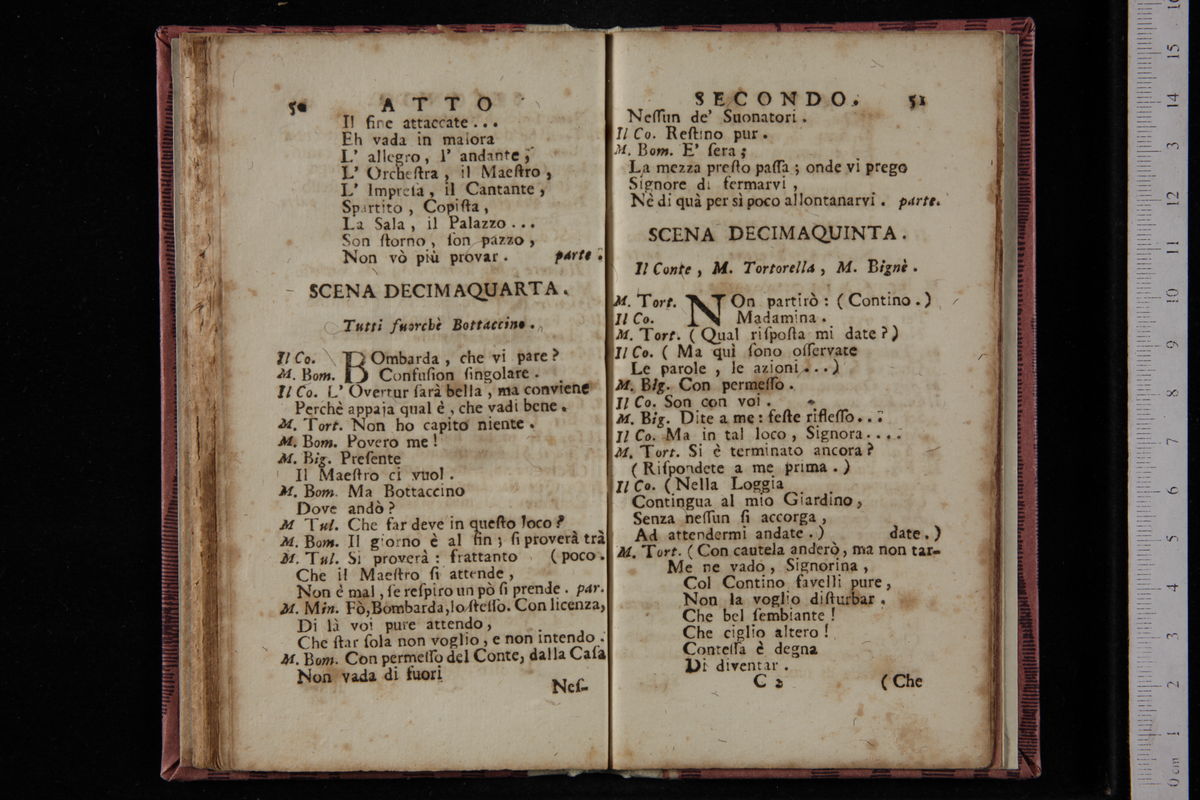 50 ATTO
Il fine attaccate...
Eh vada in maiora
L' allegro, l' andante;
L' Orcheſtra, il Maeſtro,
L' Impreſa, il Cantante,
Spartito, Copiſta,
La Sala, il Palazzo...
Son ſtorno, ſon pazzo,
Non vò più provar. parte.
SCENA DECIMAQUARTA.
Tutti fuorchè Bottaccino.
Il Co. BOmbarda, che vi pare?
M. Bom. Confuſion ſingolare.
Il Co. L' Overtur ſarà bella, ma conviene
Perchè appaja qual é, che vadi bene.
M. Tort. Non ho capito niente.
M. Bom. Povero me!
M. Big. Preſente
Il Maeſtro ci vuol.
M. Bom. Ma Bottaccino
Dove andò?
M Tul. Che far deve in queſto loco?
M. Bom. Il giorno è al fin; ſi proverà trà
M. Tul. Si proverà: frattanto (poco.
Che il Maeſtro ſi attende,
Non è mal, ſe reſpiro un pò ſi prende. par.
M. Min. Fò, Bombarda, lo ſteſſo. Con licenza,
Di là voi pure attendo,
Che ſtar ſola non voglio, e non intendo.
M. Bom. Con permeſſo del Conte, dalla Caſa
Non vada di fuori
Neſ-
SECONDO. 51
Neſſun de' Suonatori.
Il Co. Reſtino pur.
M. Bom. E' ſera;
La mezza preſto paſſa; onde vi prego
Signore di fermarvi,
Nè di quà per sì poco allontanarvi. parte.
SCENA DECIMAQUINTA.
Il Conte, M. Tortorella, M. Bignè.
M. Tort. NOn partirò: (Contino.)
Il Co. Madamina.
M. Tort. (Qual riſpoſta mi date?)
Il Co. (Ma quì ſono oſſervate
Le parole, le azioni...)
M. Big. Con permeſſo.
Il Co. Son con voi.
M. Big. Dite a me: feſte rifleſſo...
Il Co. Ma in tal loco, Signora....
M. Tort. Si è terminato ancora?
(Riſpondete a me prima.)
Il Co. (Nella Loggia
Contingua al mio Giardino,
Senza neſſun ſi accorga,
Ad attendermi andate.) date.)
M. Tort. (Con cautela anderò, ma non tar-
Me ne vado, Signorina,
Col Contino favelli pure,
Non la voglio diſturbar.
Che bel ſembiante!
Che ciglio altero!
Conteſſa è degna
Di diventar.
C 2 (Che